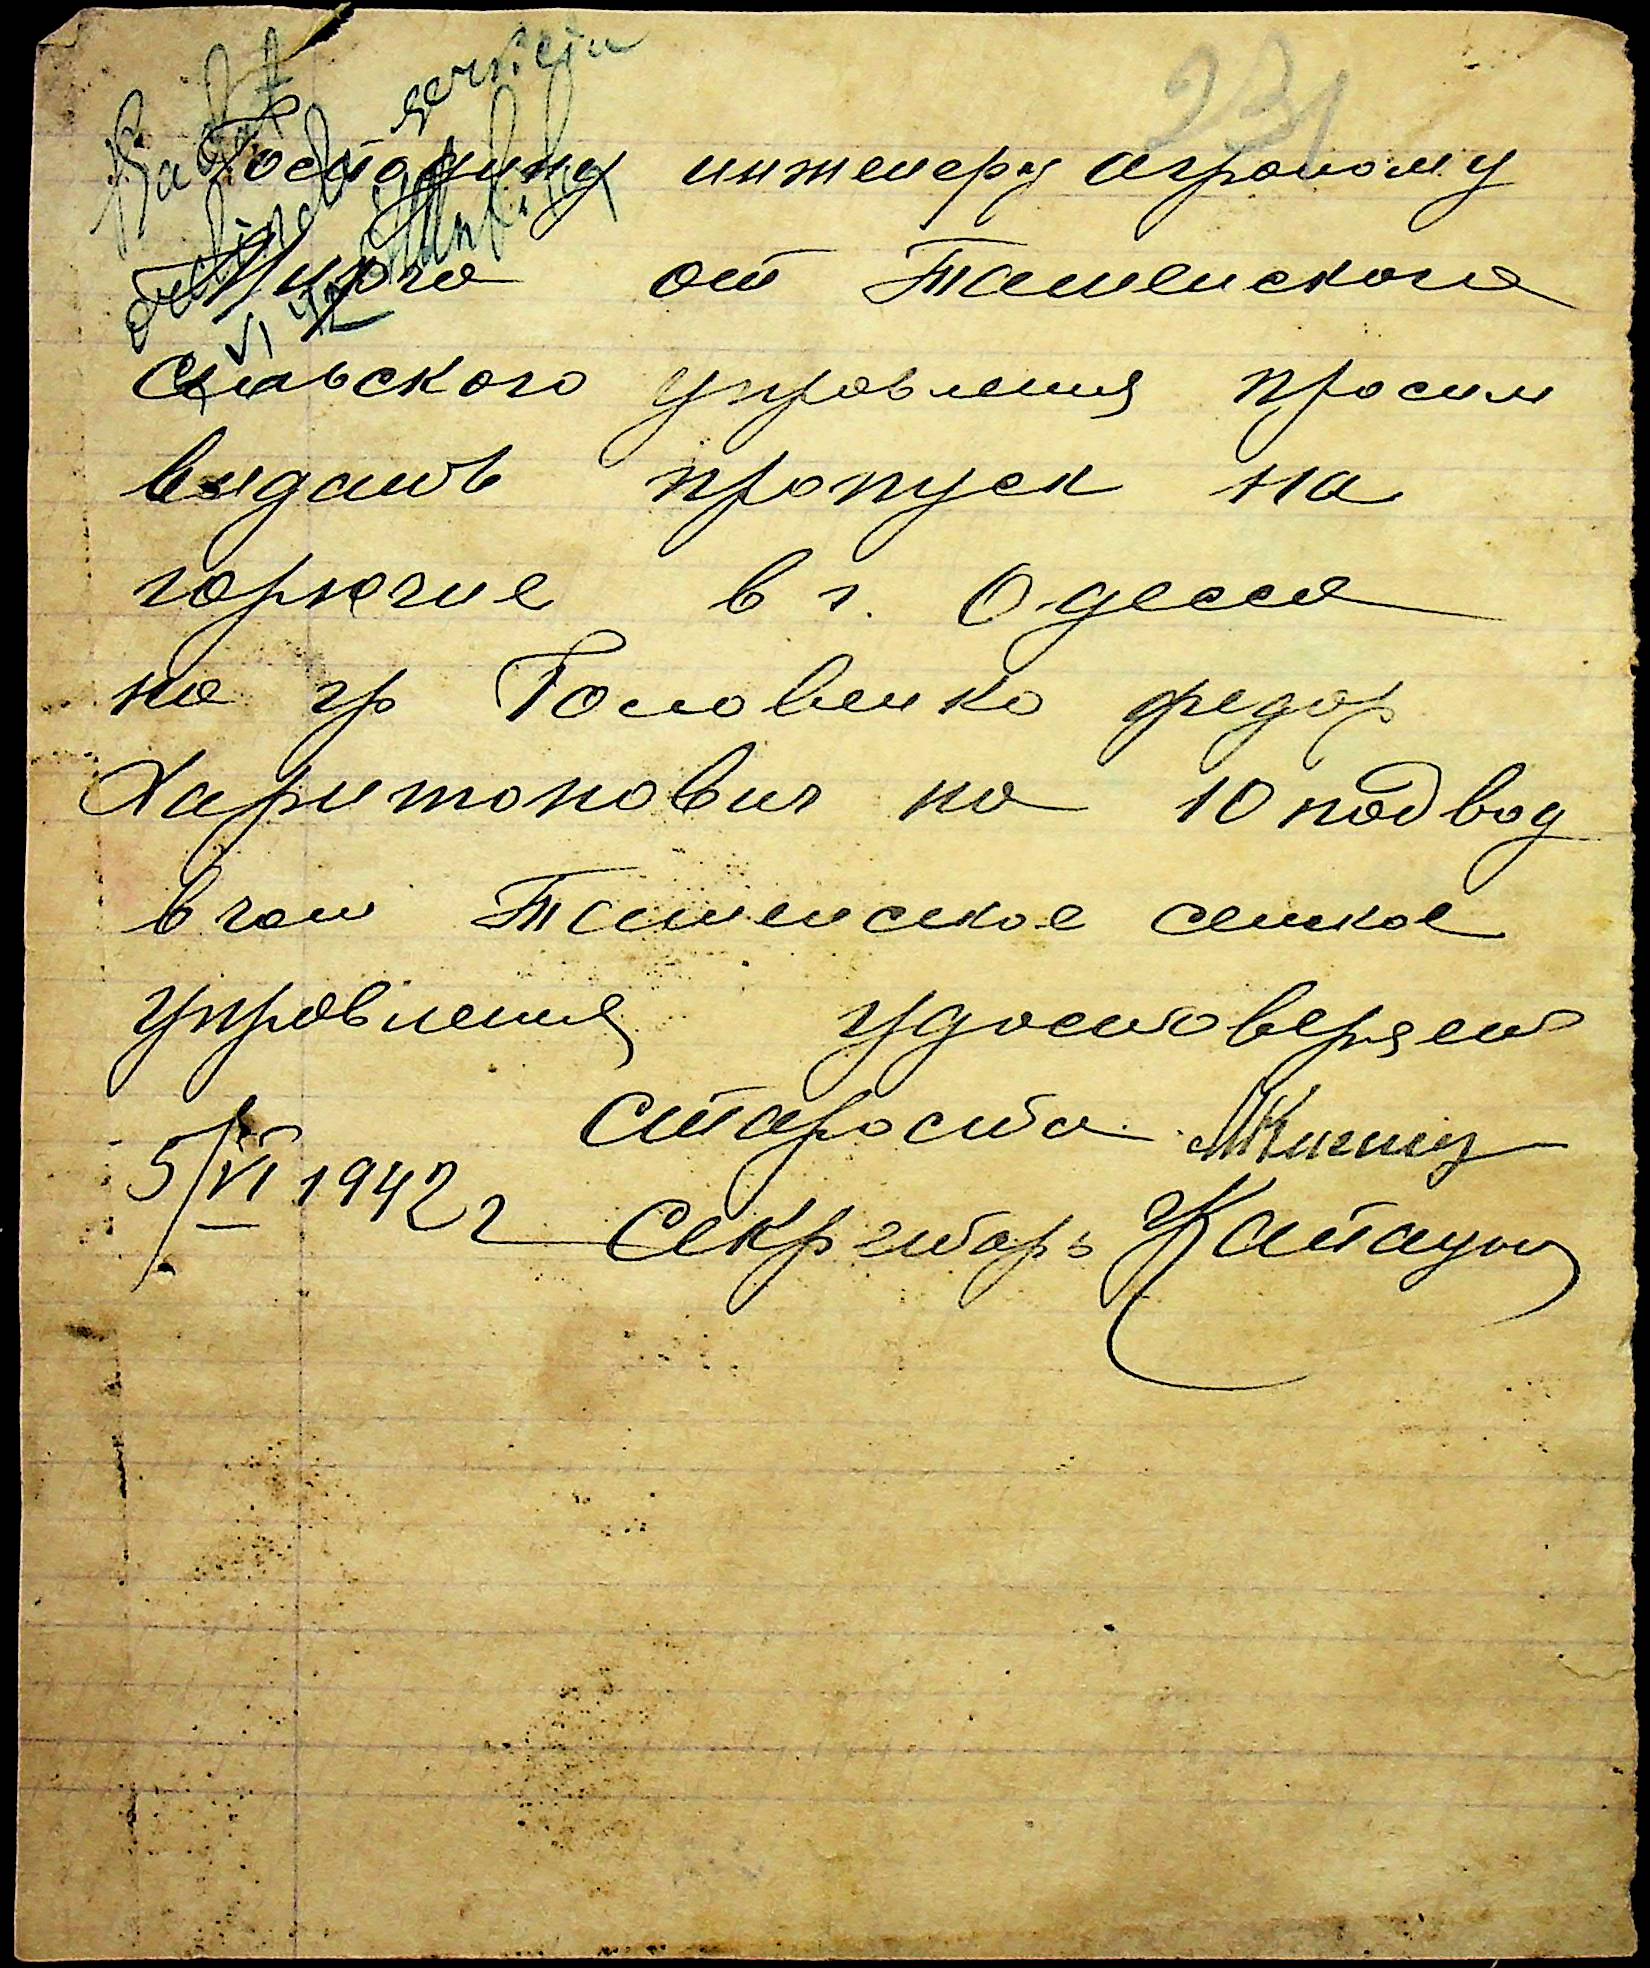 231
Господину инженеру агроному
от Ташенского
Сельского управления просим
выдать пропуск на
горючие в г. Одесса
на гр Головенко федор
Харитонович на 10 подвод
в чом Ташенское селское
управления удостоверяет
Староста
5/VI 1942 г Секретарь